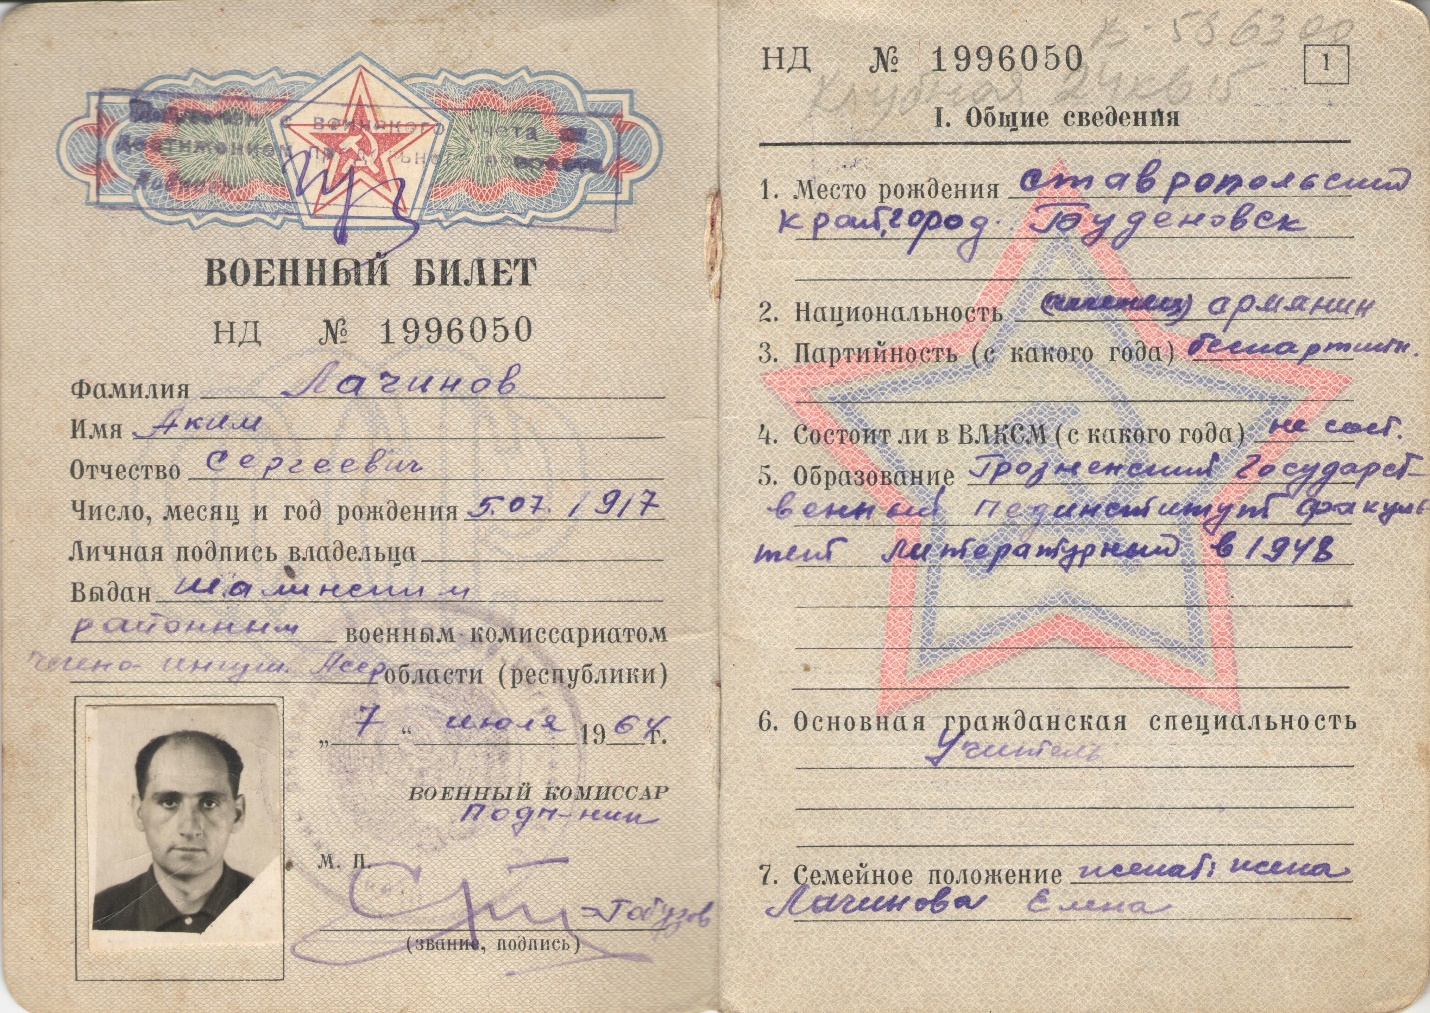 с воинского учета
достижением предельного возраста
ВОЕННЫЙ БИЛЕТ
НД № 1996050
Фамилия Лачинов
Имя Аким
Отчество Сергеевич
Число, месяц и год рождения 5.07.1917
Личная подпись владельца
Выдан Шалинским
районным военным комиссариатом
Чечено-ингуш. Асср области (республики)
„ 7 “ июля 1964 г.
ВОЕННЫЙ КОМИССАР
Подп-ник
М. П.
(звание, подпись)
К-586300
НД № 1996050
1
I. Общие сведения
1. Место рождения Ставропольский
край, город. Буденовск
2. Национальность армянин
3. Партийность (с какого года) беспартийн.
4. Состоит ли в ВЛКСМ (с какого года) не сост.
5. Образование Грозненский Государст-
венный Пединститут факуль-
тет литературный в 1948
6. Основная гражданская специальность
Учитель
7. Семейное положение женат: жена
Лачинова Елена